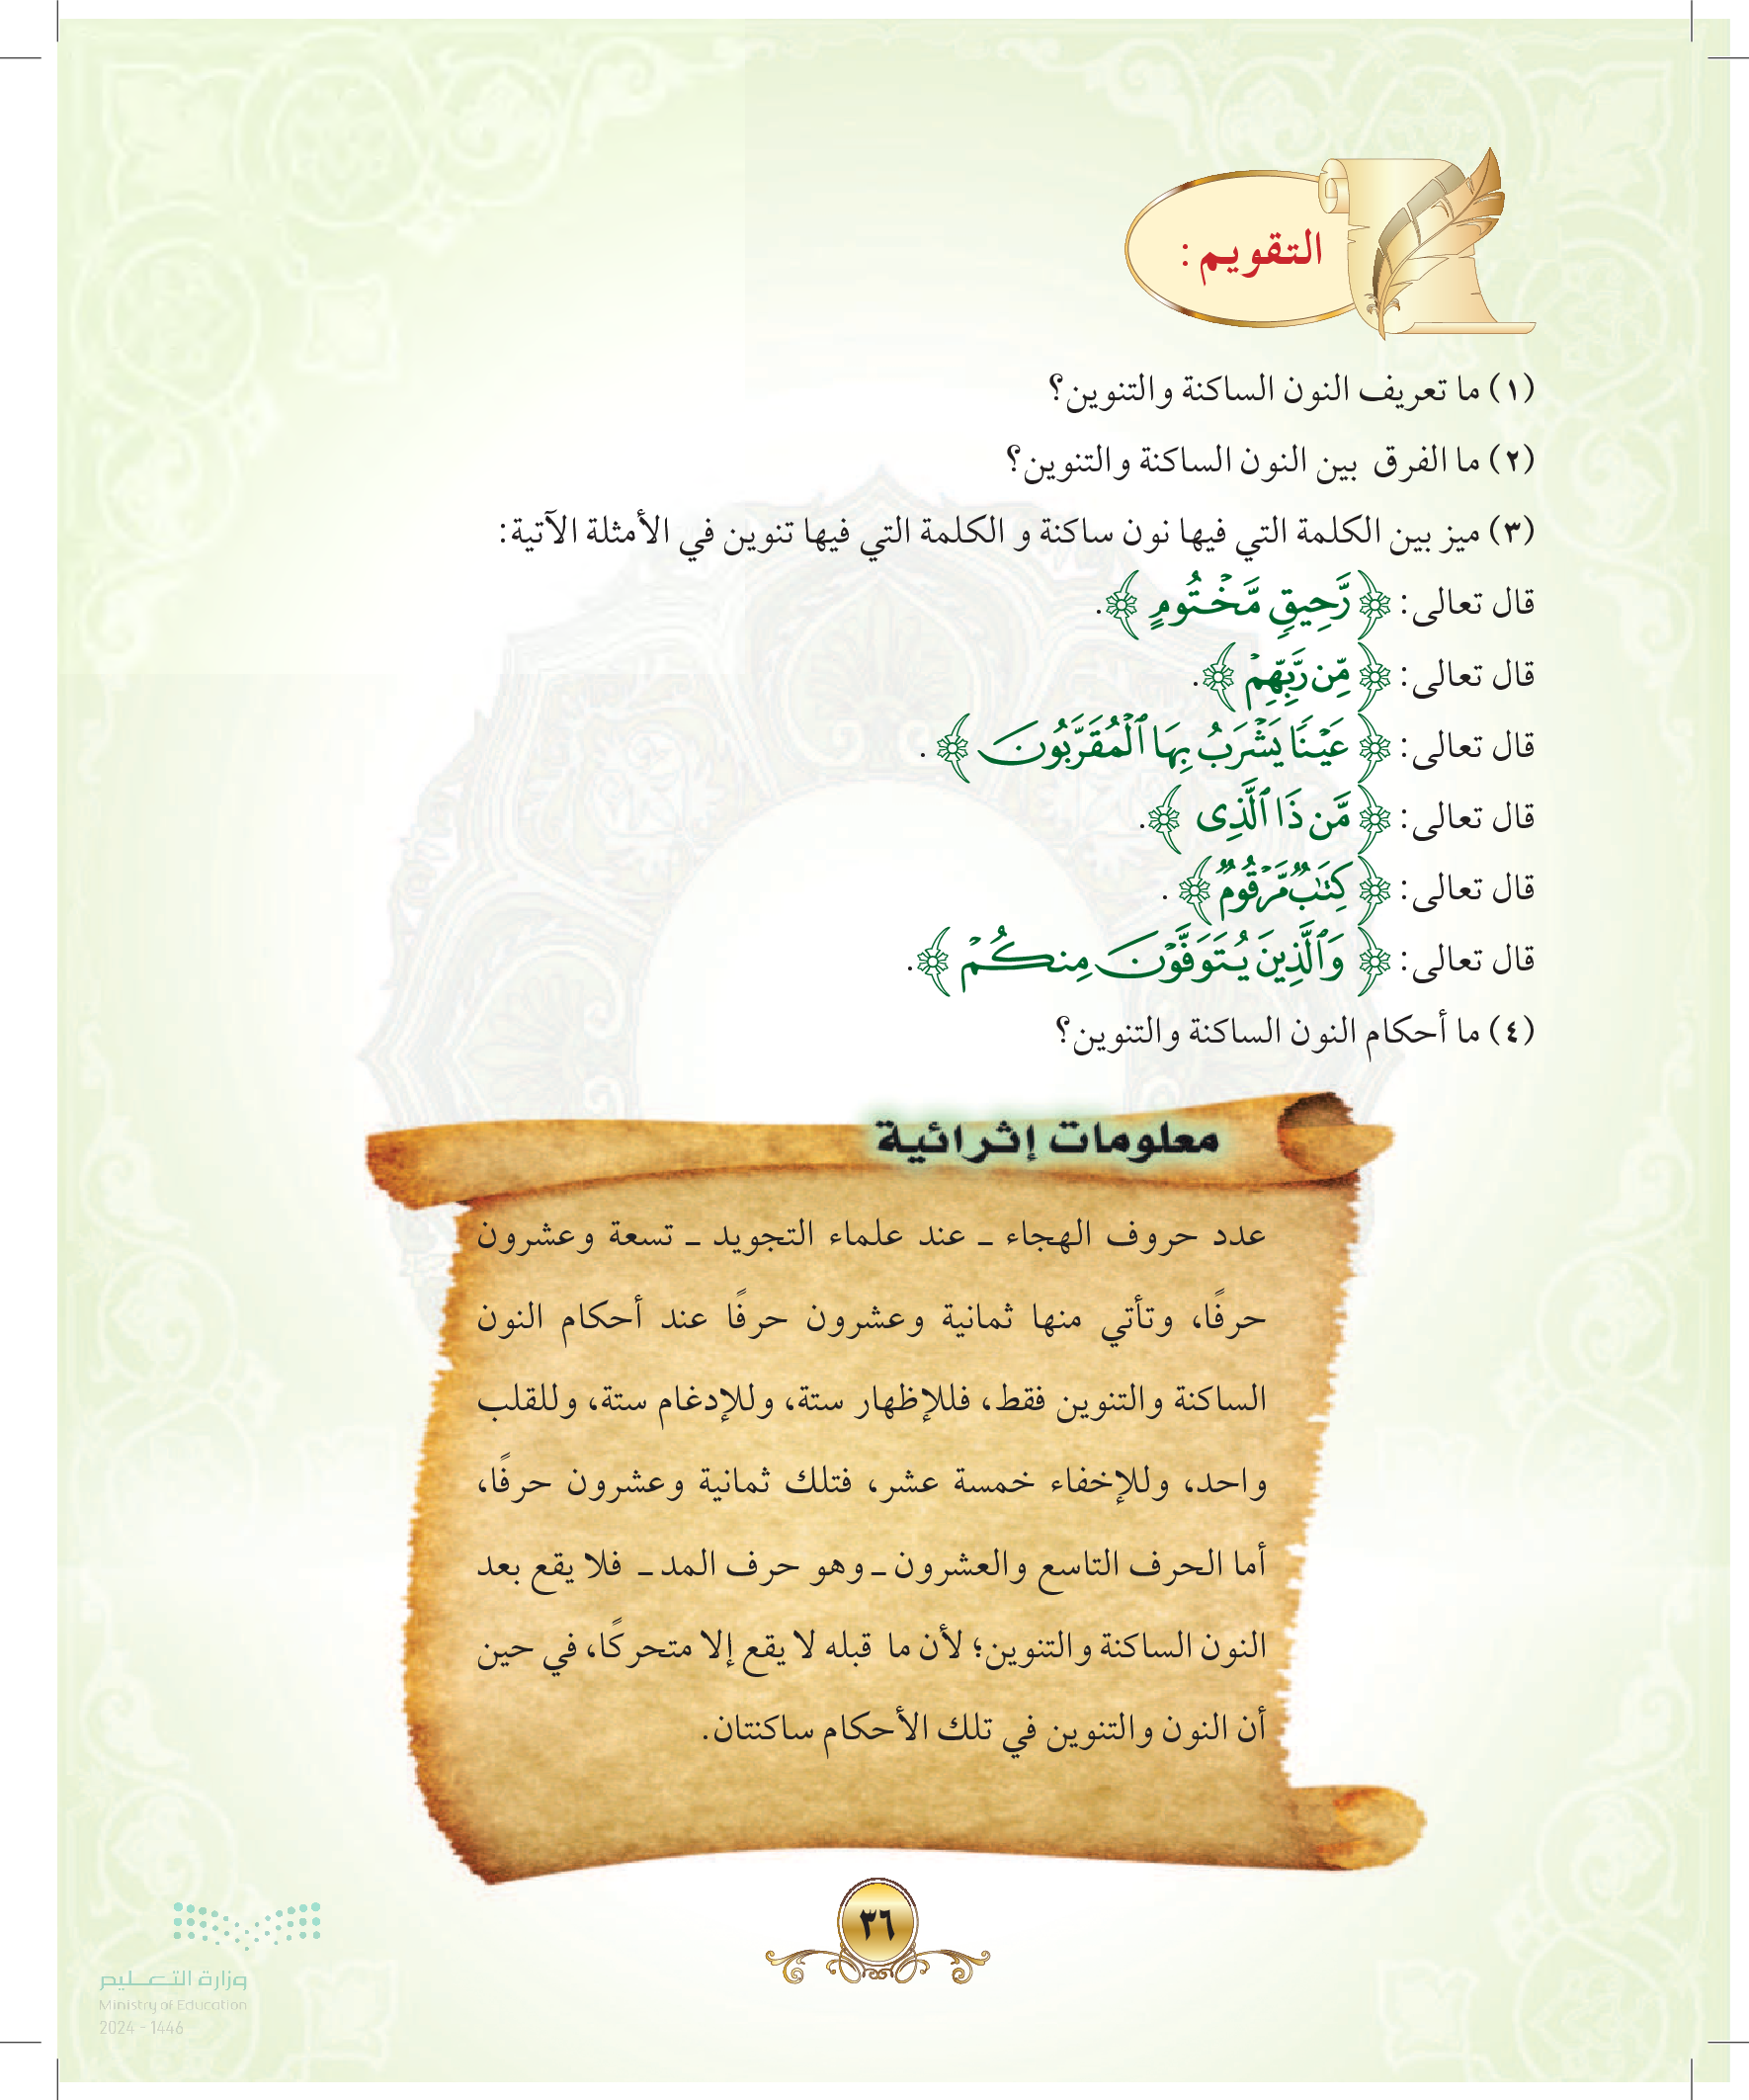 التقويم :
(١) ما تعريف النون الساكنة والتنوين؟
(٢) ما الفرق بين النون الساكنة والتنوين؟
(٣) ميز بين الكلمة التي فيها نون ساكنة و الكلمة التي فيها تنوين في الأمثلة الآتية:
قال تعالى: ﴿ رَّحِيقٖ مَّخۡتُومٍ ﴾.
قال تعالى: ﴿ مِّن رَّبِّهِمۡ ﴾.
قال تعالى: ﴿ عَيۡنٗا يَشۡرَبُ بِهَا ٱلۡمُقَرَّبُونَ ﴾ .
قال تعالى: ﴿ مَّن ذَا ٱلَّذِى ﴾.
قال تعالى: ﴿ كِتَٰبٞ مَّرۡقُومٞ ﴾ .
قال تعالى: ﴿ وَٱلَّذِينَ يُتَوَفَّوۡنَ مِنكُمۡ ﴾.
(٤) ما أحكام النون الساكنة والتنوين؟
معلومات إثرائية
عدد حروف الهجاء ـ عند علماء التجويد ـ تسعة وعشرون
حرفًا، وتأتي منها ثمانية وعشرون حرفًا عند أحكام النون
الساكنة والتنوين فقط، فللإظهار ستة، وللإدغام ستة، وللقلب
واحد، وللإخفاء خمسة عشر، فتلك ثمانية وعشرون حرفًا،
أما الحرف التاسع والعشرون ـ وهو حرف المد ـ فلا يقع بعد
النون الساكنة والتنوين؛ لأن ما قبله لا يقع إلا متحركًا، في حين
أن النون والتنوين في تلك الأحكام ساكنتان.
٣٦
وزارة التعليم
Ministry of Education
2024 - 1446